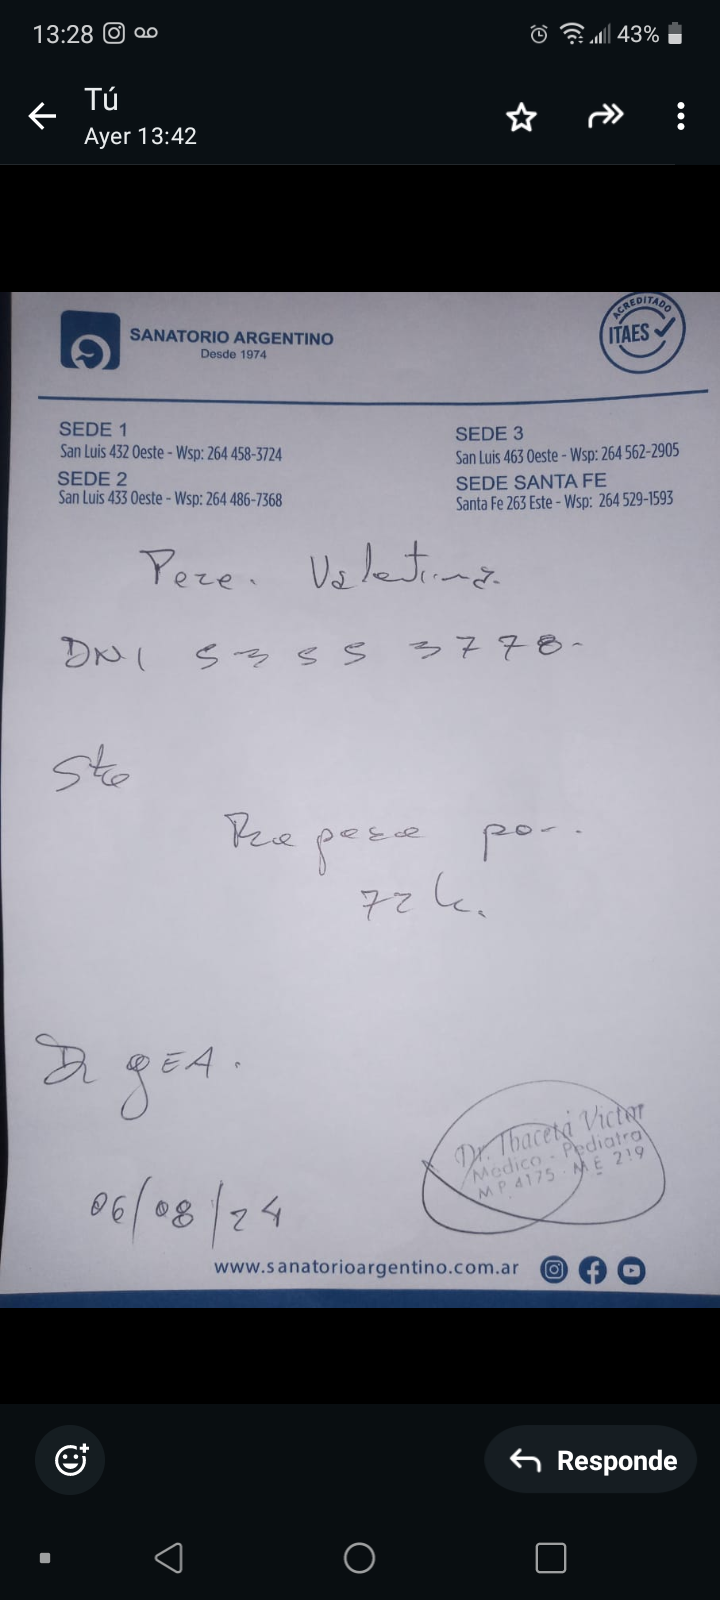 13:28 43%
Tú
Ayer 13:42
SANATORIO ARGENTINO
Desde 1974
ACREDITADO
ITAES
SEDE 1
San Luis 432 Oeste - Wsp: 264 458-3724
SEDE 2
San Luis 433 Oeste - Wsp: 264 486-7368
SEDE 3
San Luis 463 Oeste - Wsp: 264 562-2905
SEDE SANTA FE
Santa Fe 263 Este - Wsp: 264 529-1593
Valentina
DNI 5355 3778-
por
72 h.
GEA.
Dr. Ibaceta Victor
Medico - Pediatra
M P 4175 - M E 219
06/08/24
www.sanatorioargentino.com.ar
Responde